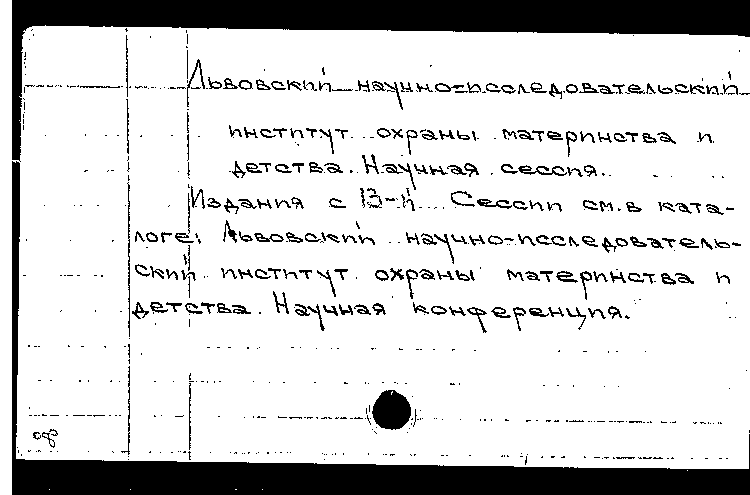 Львовский научно-исследовательский
институт охраны материнства и
детства. Научная сессия.
Издания с 13-й Сессии см. в ката-
логе: Львовский научно-исследователь-
ский институт охраны материнства и
детства. Научная конференция.